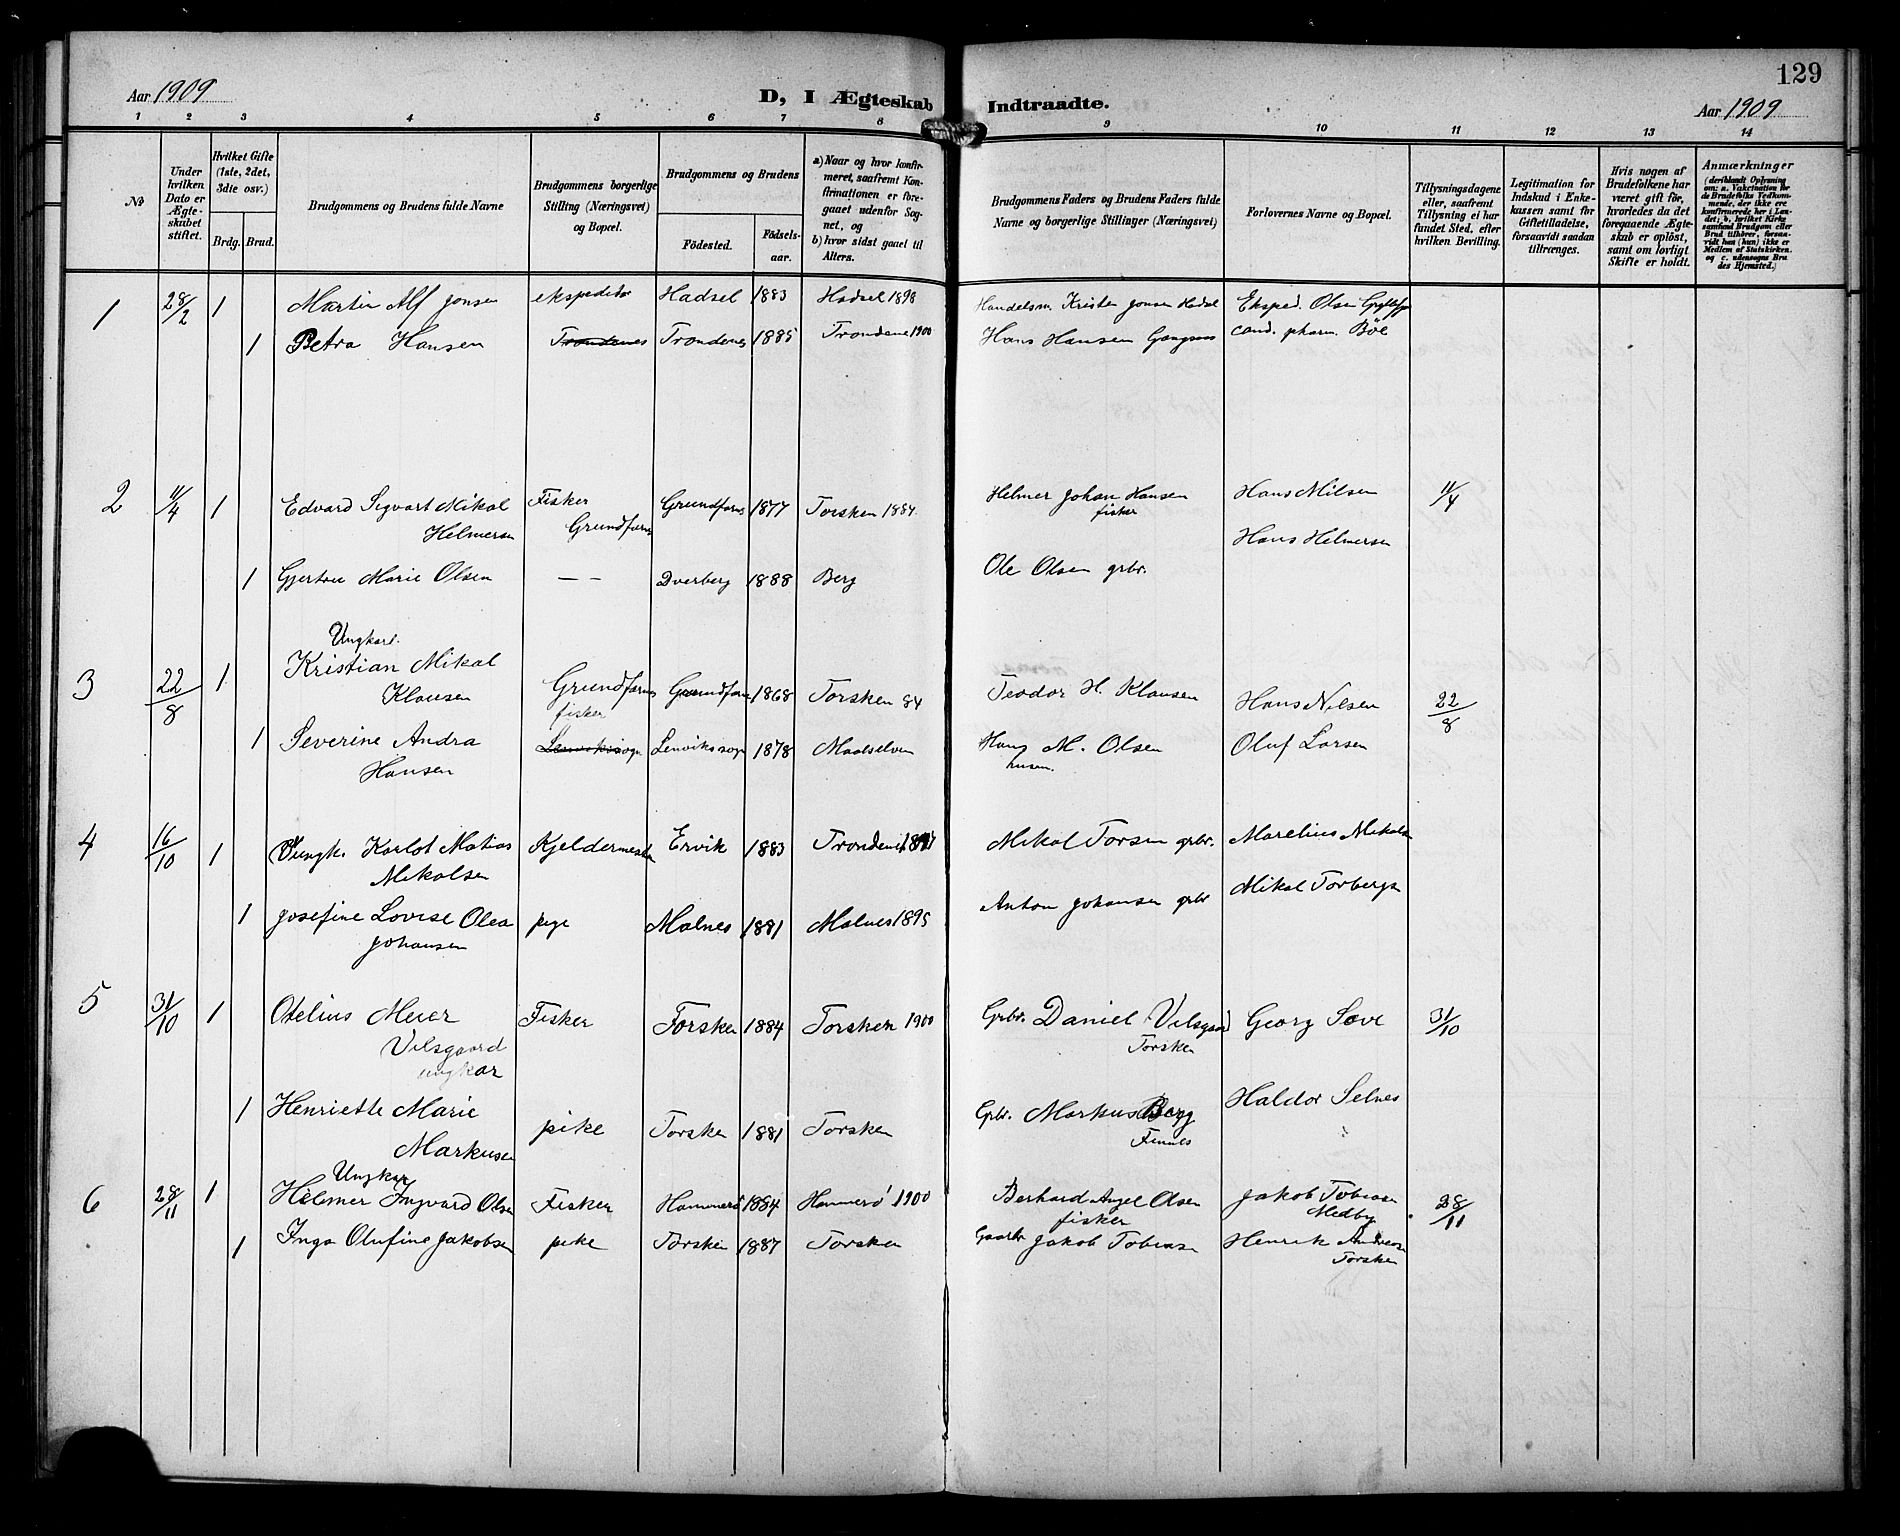 129
Aar 1909
D, I Ægteskab Indtraadte.
Aar 1909
1 2 3 4 5 6 7 8 9 10 11 12 13 14
No
Under hvilken Dato er Ægteskabet stiftet.
Hvilket Gifte (1ste, 2det, 3die osv.)
Brdg. Brud.
Brudgommens og Brudens fulde Navne
Brudgommens borgerlige Stilling (Næringsvei) og Bopæl.
Brudgommens og Brudens
Födested.
Födselsaar.
a) Naar og hvor konfirmeret, saafremt Konfirmationen er foregaaet udenfor Sognet, og
b) hvor sidst gaaet til Alters.
Brudgommens Faders og Brudens Faders fulde Navne og borgerlige Stillinger (Næringsvei)
Forlovernes Navne og Bopæl.
Tillysningsdagene eller, saafremt Tillysning ei har fundet Sted, efter hvilken Bevilling.
Legitimation for Indskud i Enkekassen samt for Giftetilladelse, forsaavidt saadan tiltrænges.
Hvis nogen af Brudefolkene har været gift för, hvorledes da det foregaaende Ægteskab er oplöst, samt om lovligt Skifte er holdt.
Anmærkninger
(deriblandt Oplysning om: a. Vakcination for de Brudefolks Vedkommende, der ikke ere konfirmerede her i Landet; b. hvilket Kirkesamfund Brudgom eller Brud tilhörer, forsaavidt han (hun) ikke er Medlem af Statskirken, og c. udensogns Brudes Hjemsted.)
1 28/2 1 Martin Alf Jonsen ekspeditør Hadsel 1883 Hadsel 1898 Handelsm. Kristen Jonsen Hadsel Eksped. Olsen
1 Petra Hansen Trondenes Trondenes 1885 Trondene 1900 Hans Hansen cand. pharm. Böe
2 11/4 1 Edvard Sigvart Mikal Fisker Grundfarns 1877 Torsken 1884. Helmer Johan Hansen Hans Nilsen 11/4
Helmersen Grundfarns fisker Hans Helmersen
1 Gjertrue Marie Olsen — — Dverberg 1888 Berg Ole Olsen grbr.
Ungkarl.
3 22/8 1 Kristian Mikal Grundfarns Grundfarns 1868 Torsken 84 Teodor H. Klausen Hans Nilsen 22/8
Klausen fisker
1 Severine Andra Lenvikssogn Lenvikssogn 1878 Maalselven Hans M. Olsen Oluf Larsen
Hansen husm.
4 16/10 1 Ungk. Karlot Matias Kjeldermester Ervik 1883 Trondenes Mikal Torsen grbr. Marelius Mikalsen
Mikalsen
1 Josefine Lovise Olea pige Malnes 1881 Malnes 1895 Anton Johansen grbr Mikal Torbergs
Johansen
5 31/10 1 Otelius Meier Fisker Torsken 1884 Torsken 1900 Grbr. Daniel Vilsgaard Georg Sove 31/10
Vilsgaard Torsken
ungkar
1 Henriette Marie pike Torsken 1881 Torsken Grbr. Markus Berg Haldor Selnes
Markusen Finnes
Ungkar
6 28/11 1 Hilmer Ingvard Olsen Fisker Hammerö 1884 Hammerö 1900 Berhard Angel Olsen Jakob Tobiasen 28/11
fisker Medby
1 Inga Olufine Jakobsen pike Torsken 1887 Torsken Gaarbr Jakob Tobiasen Henrik Andreasen
Torsken